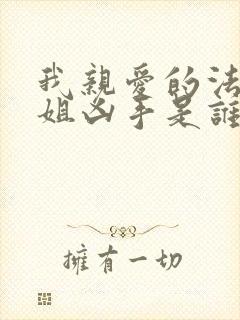 我親愛的法
姐凶手是誰
擁有一切